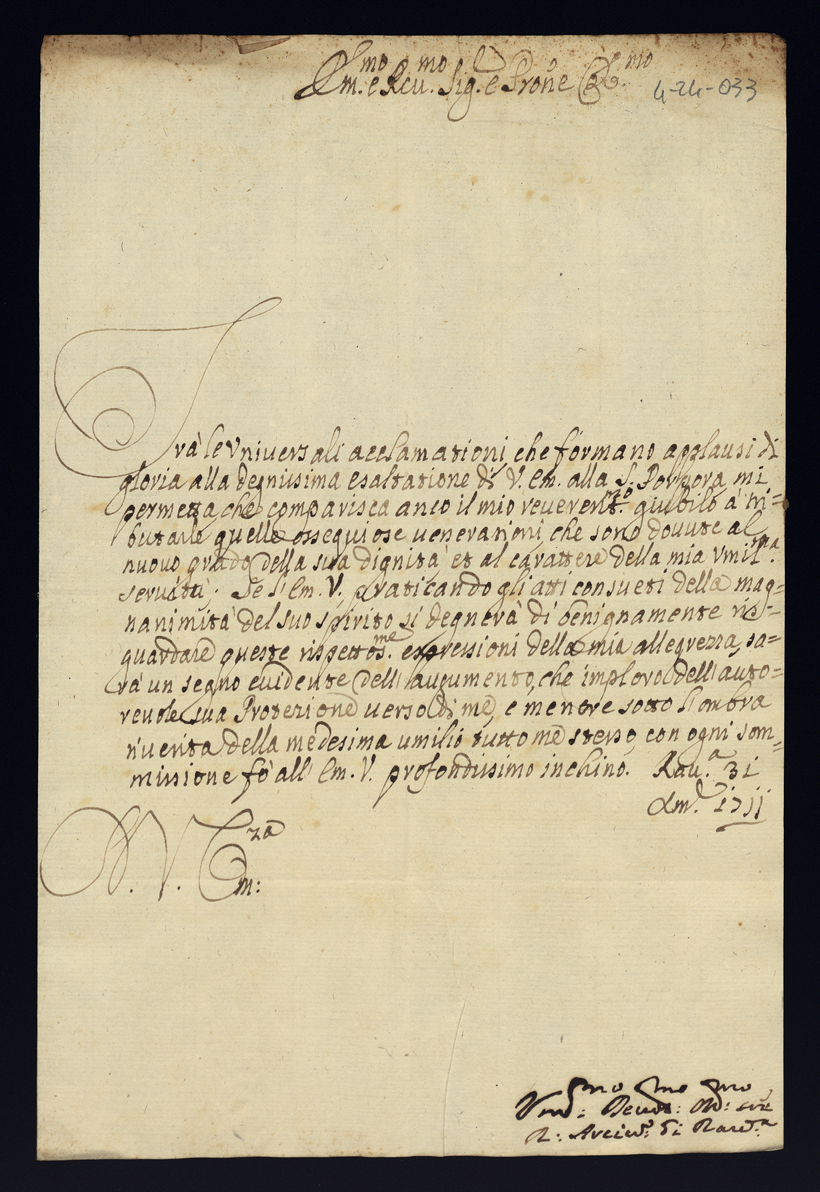 Em.mo e Reu.mo Sig.e e Prone
4-24-033
Trà le Vniversali acclamationi che formano applausi di
gloria alla degnissima esaltatione di V. Em. alla S. Porpora, mi
permetta che comparisca anco il mio reverent.mo giubilo à tri=
butare quelle ossequiose venerazioni, che sono dovute al
nuovo grado della sua dignità et al carattere della mia vmil.ma
servitù. Se l'Em. V. praticando gli atti consueti della mag=
nanimità del suo spirito si degnerà di benignamente ris=
guardare queste rispettos.me espressioni della mia allegrezza, sa=
rà un segno evidente dell'augumento, che imploro dell'auto=
revole sua Protezione verso di me, e mentre sotto l'ombra
riverita della medesima umilio tutto me stesso, con ogni som=
missione fo all'Em. V. profondissimo inchino. Rau.a 31
1711
V. Em:za
di